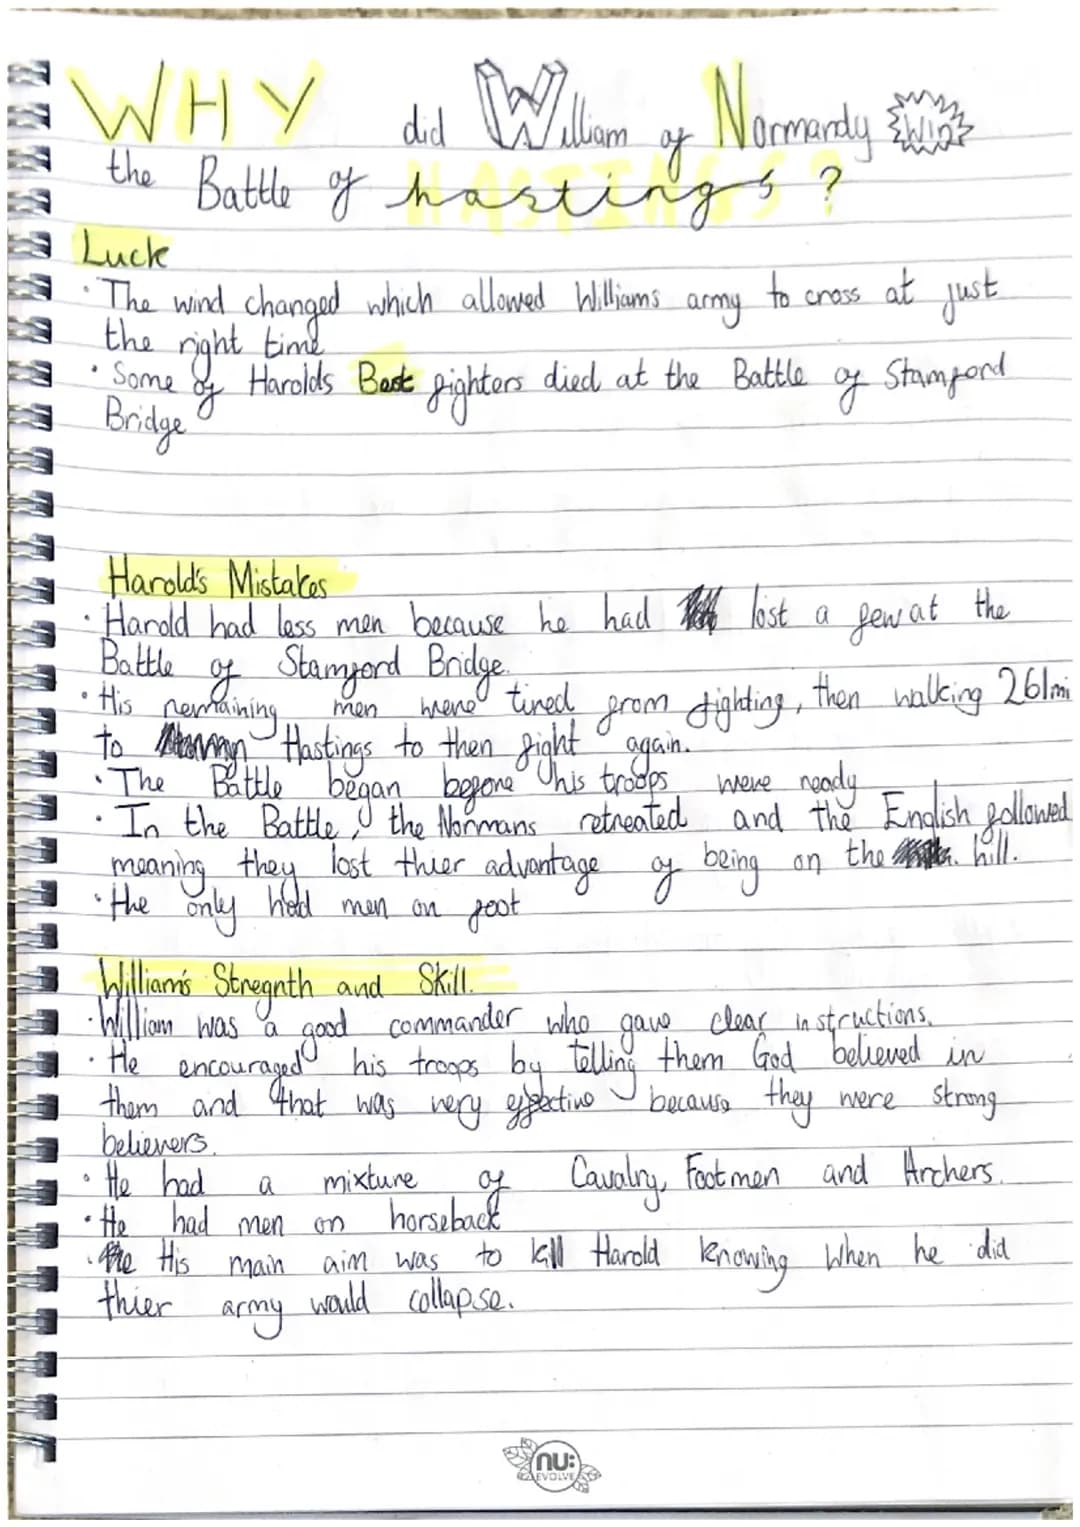 WHY did William of Normandy Win
the Battle of hastings?
HASTINGS?
Luck
• The wind changed which allowed Williams army to cross at just
the right time
• Some of Harolds Best fighters died at the Battle of Stamford
Bridge
Harold's Mistakes
• Harold had less men because he had lost a few at the
Battle of Stamford Bridge.
• His remaining men were tired from fighting, then walking 261mi
to Hastings to then fight again.
• The Battle began before his troops were ready
• In the Battle, the Normans retreated and the English followed
meaning they lost thier advantage of being on the hill.
• He only had men on foot
William's Stregnth and Skill.
• William was a good commander who gave clear instructions.
• He encouraged his troops by telling them God believed in
them and that was very effective because they were strong
believers.
• He had a mixture of Cavalry, Footmen and Archers.
• He had men on horseback
• His main aim was to kill Harold knowing when he did
thier army would collapse.
nu:
EVOLVE